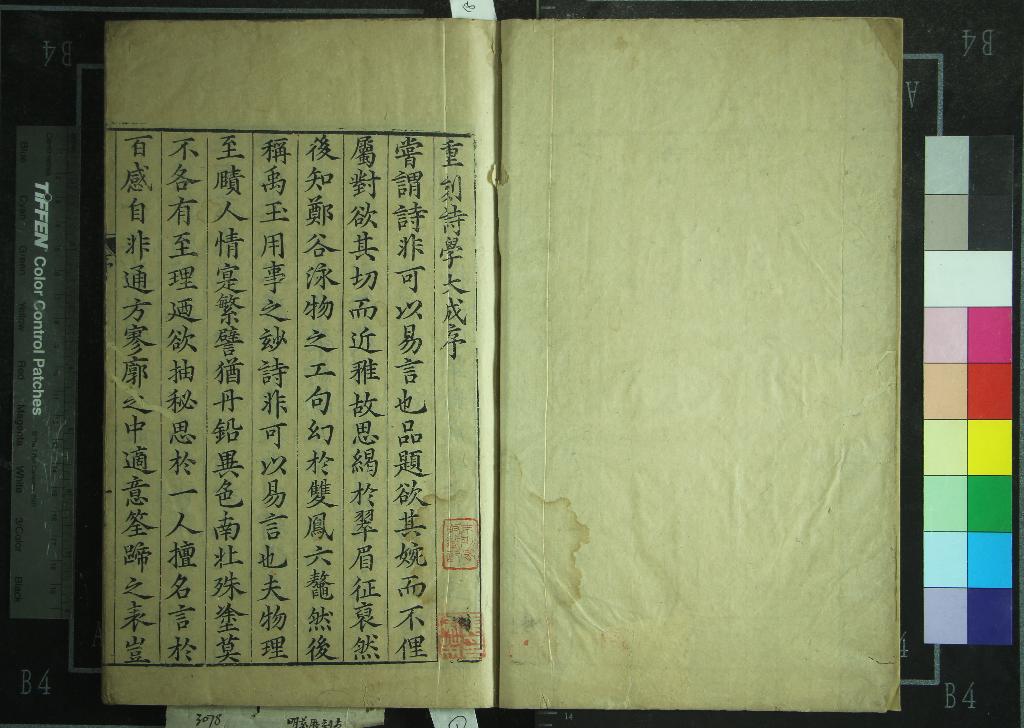 重刻詩學大成序
嘗謂詩非可以易言也品題欲其婉而不俚
屬對欲其切而近雅故思緆於翠眉征裒然
後知鄭谷泳物之工句幻於雙鳳六鼇然後
稱禹玉用事之玅詩非可以易言也夫物理
至賾人情寔繁譬猶丹鉛異色南北殊塗莫
不各有至理廼欲抽秘思於一人擅名言於
百感自非通方寥廓之中適意筌蹄之表豈
TIFFEN Color Control Patches
Blue Cyan Green Yellow Red Magenta White 3/Color Black
B4
B4
B4
B4
A
A
3078
14